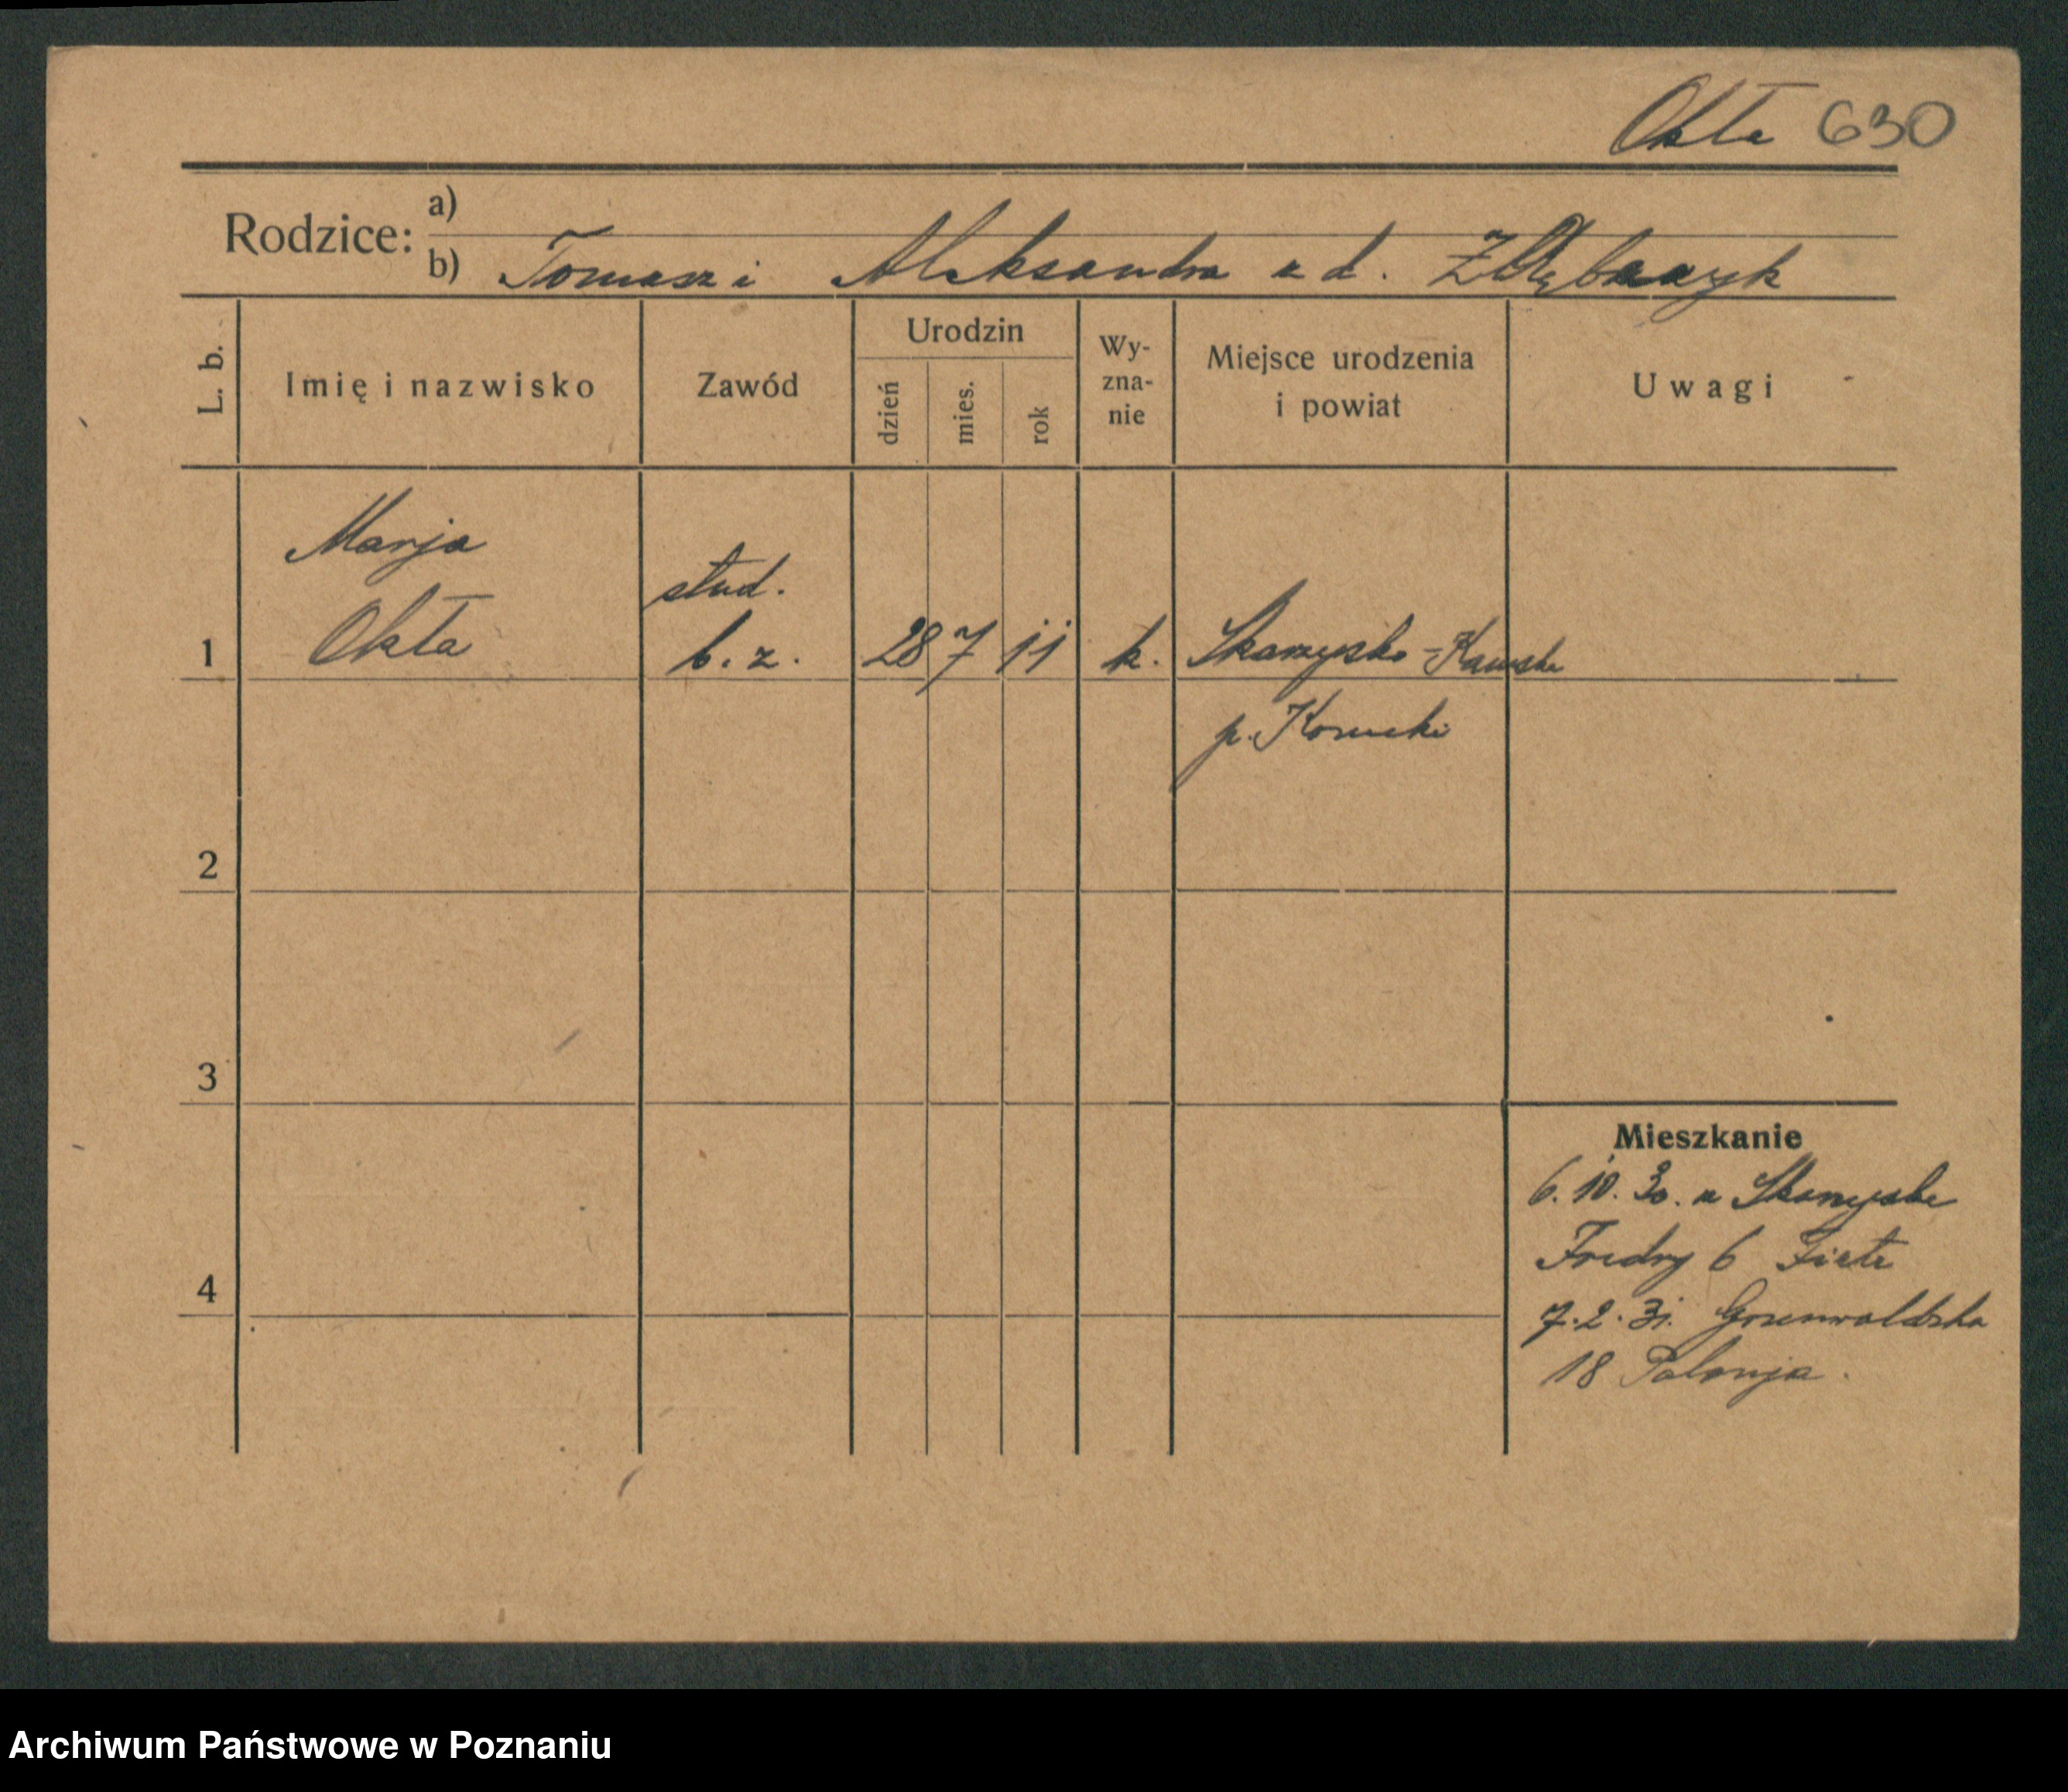 Okła 630
Rodzice: a)
b) Tomasz i Aleksandra z d.
L. b. Imię i nazwisko Zawód Urodzin dzień mies. rok Wy-zna-nie Miejsce urodzenia i powiat Uwagi
Marja
stud.
1 Okła b. z. 28 7 11 k. Skarzysko-Kamska
p. Konecki
2
3
Mieszkanie
6. 10. 30. z Skarzyska
Fredry 6
4
7. 2. 31. Grunwaldzka
18 Polonja.
Archiwum Państwowe w Poznaniu